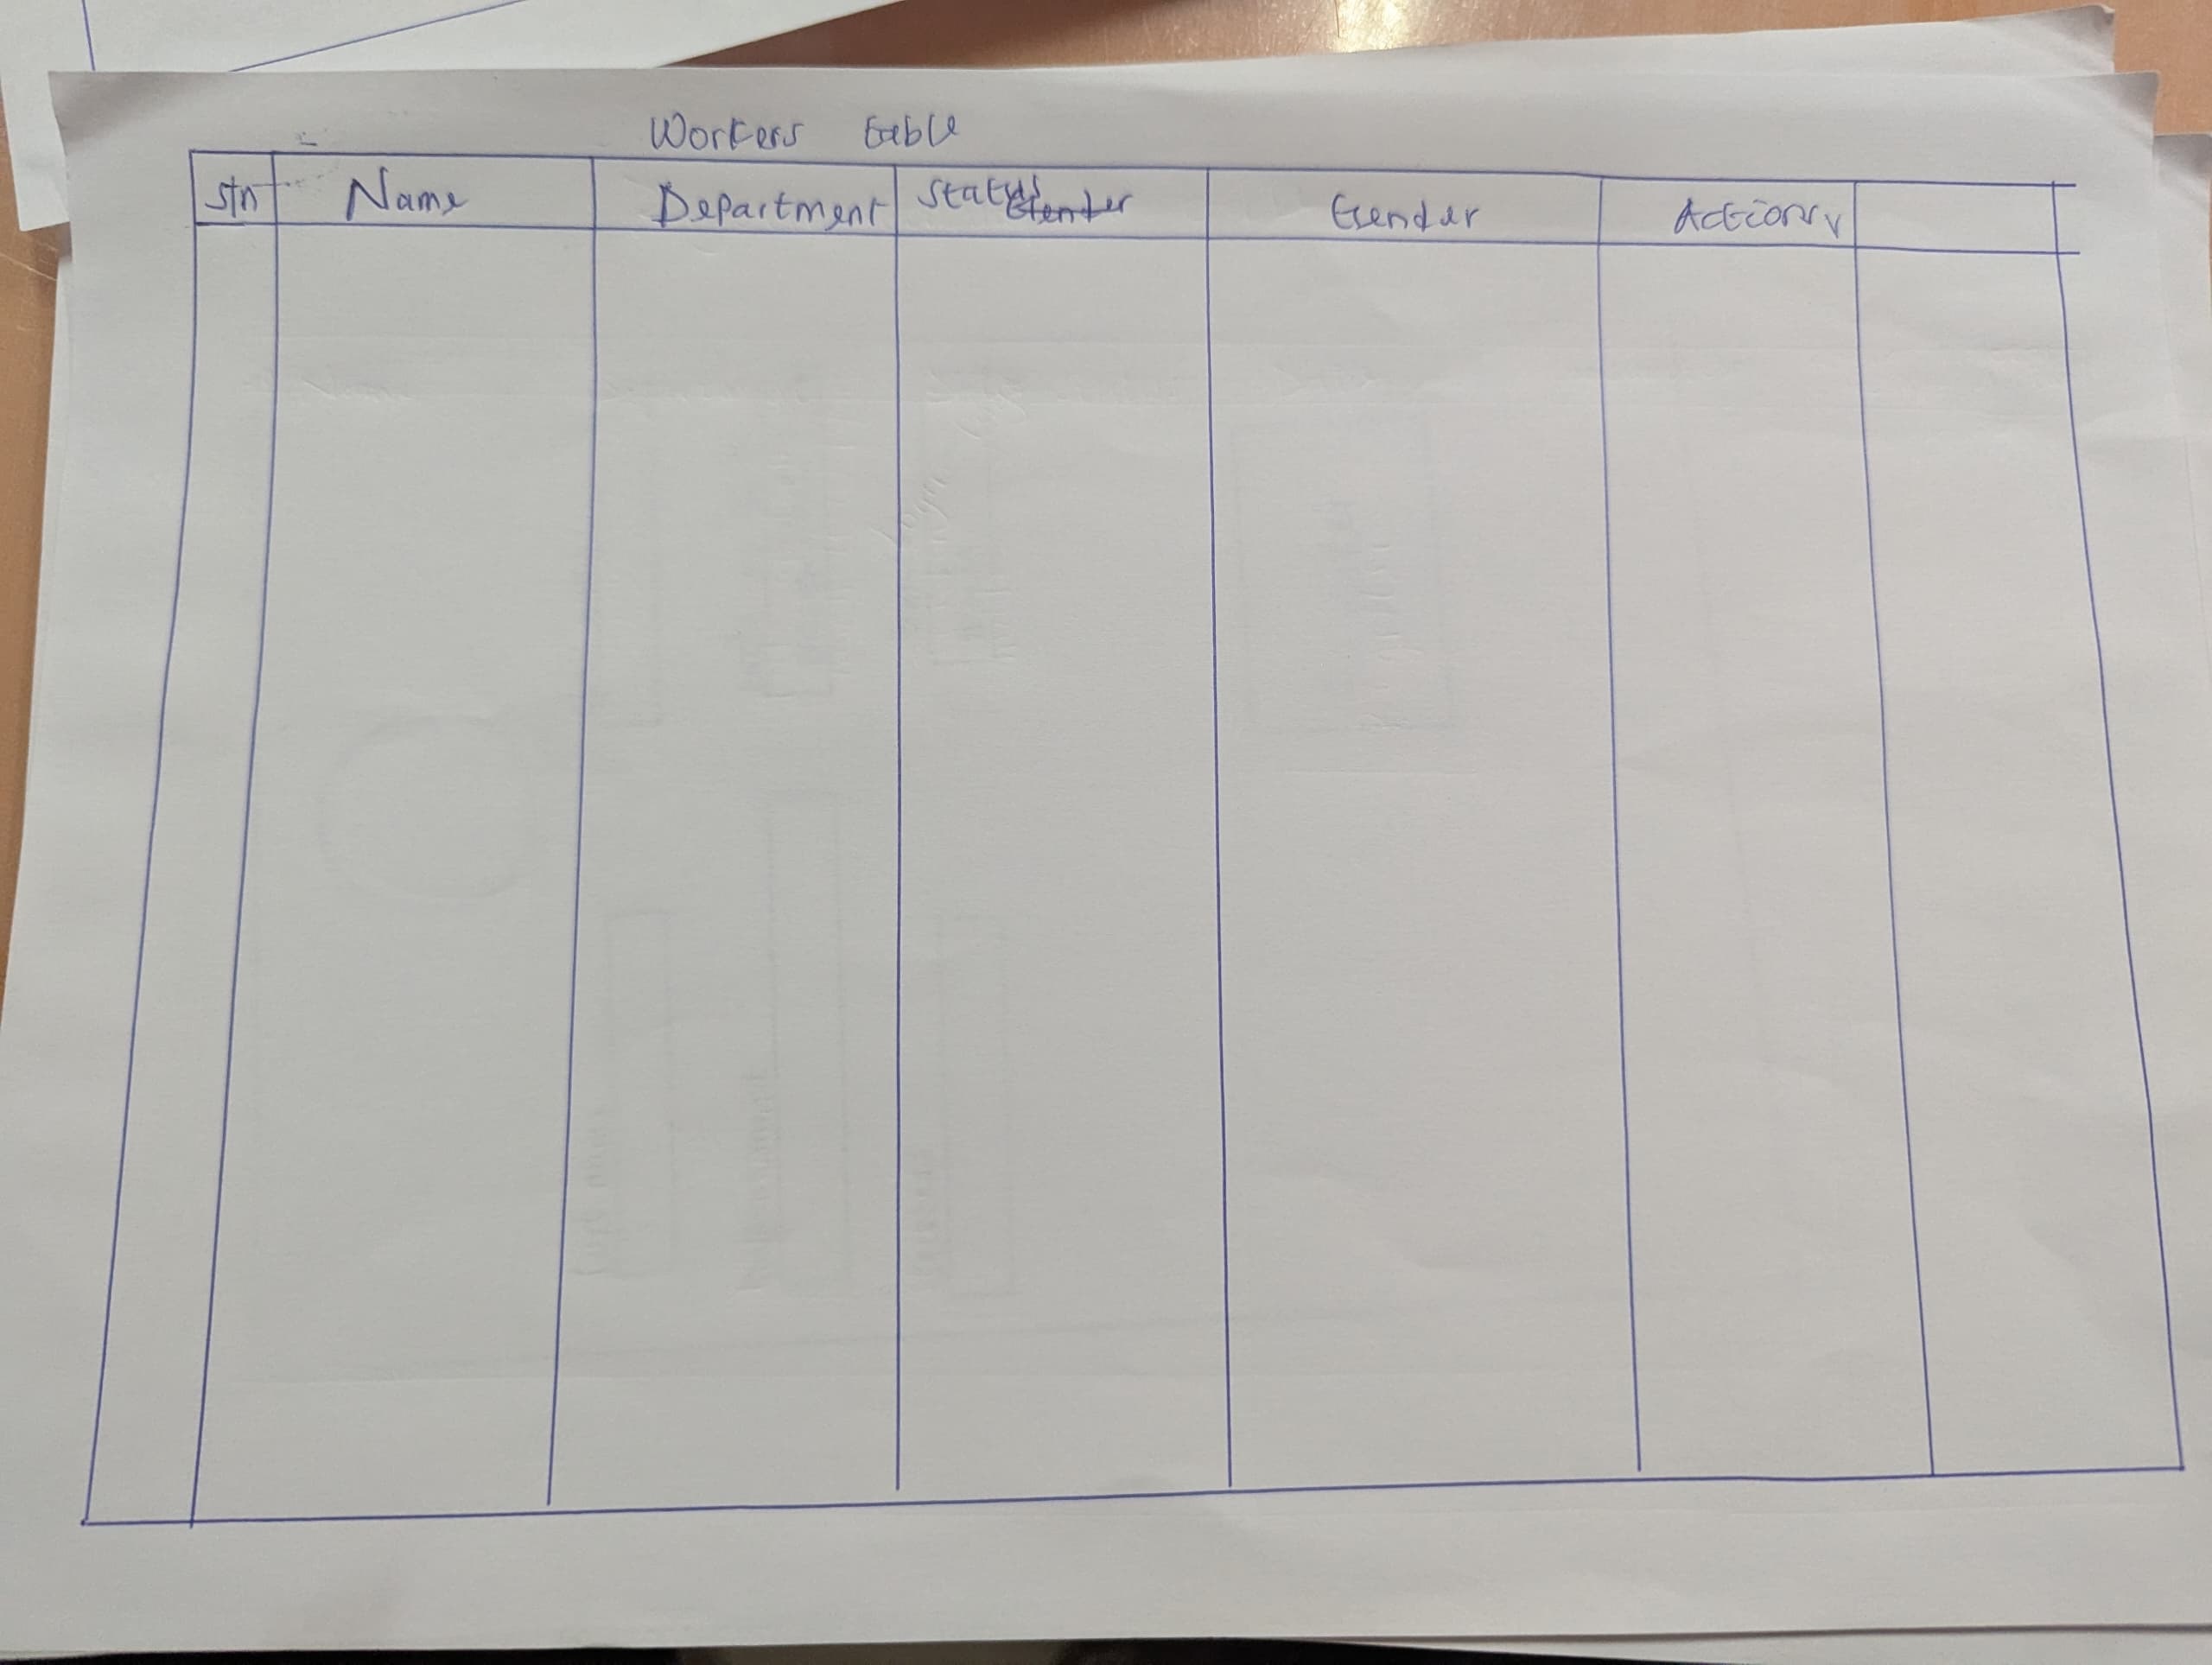 Workers table
S/n Name Department Status Gender Gender Actions